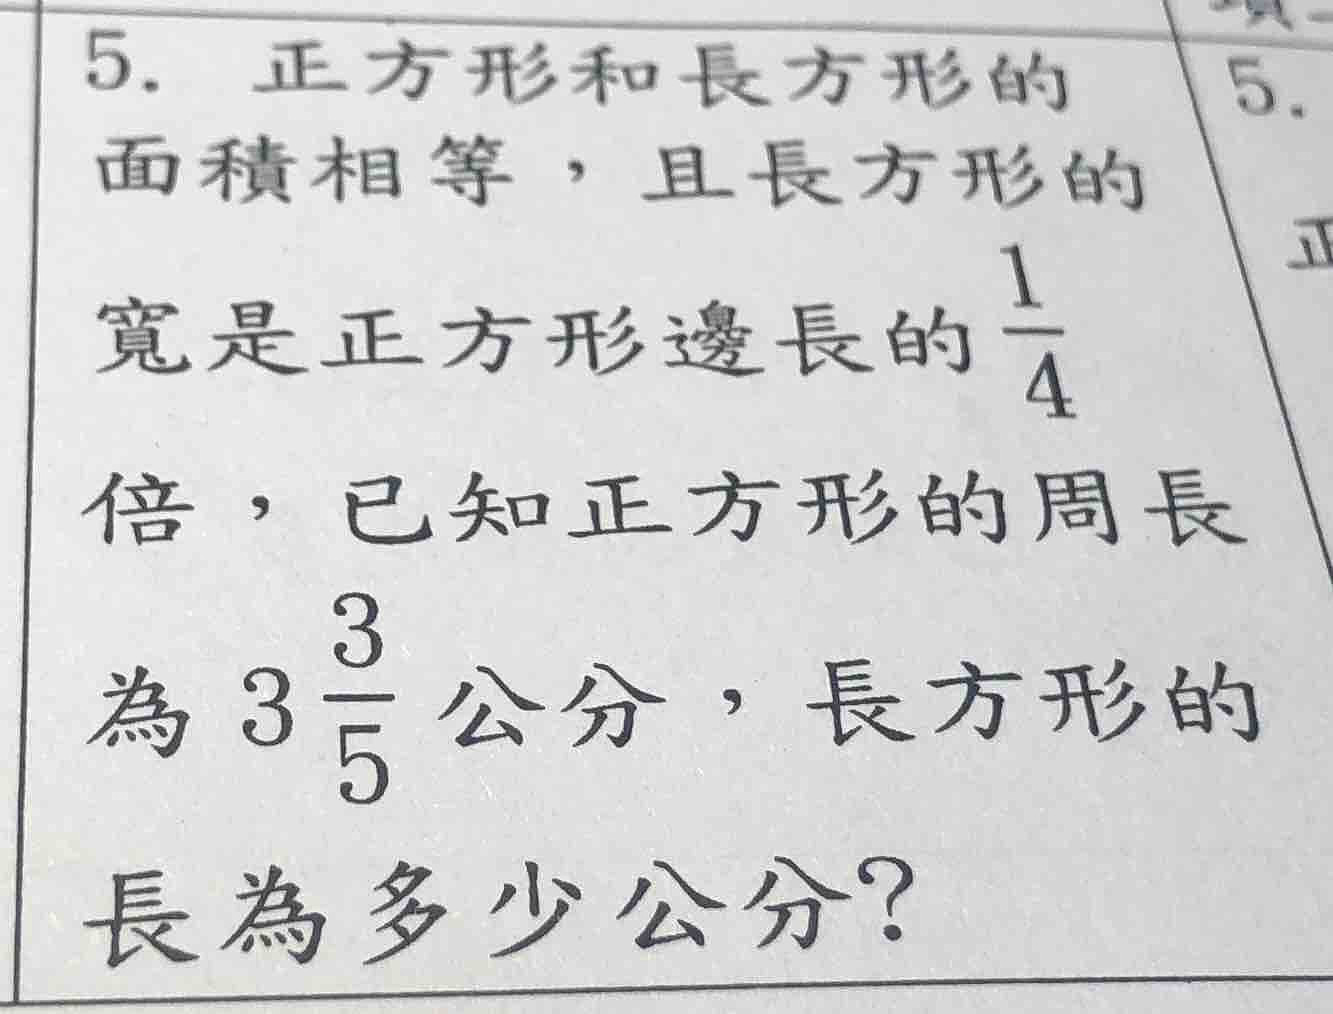 5. 正方形和長方形的
面積相等，且長方形的
寬是正方形邊長的 1/4
倍，已知正方形的周長
為 3 3/5 公分，長方形的
長為多少公分？
5.
正